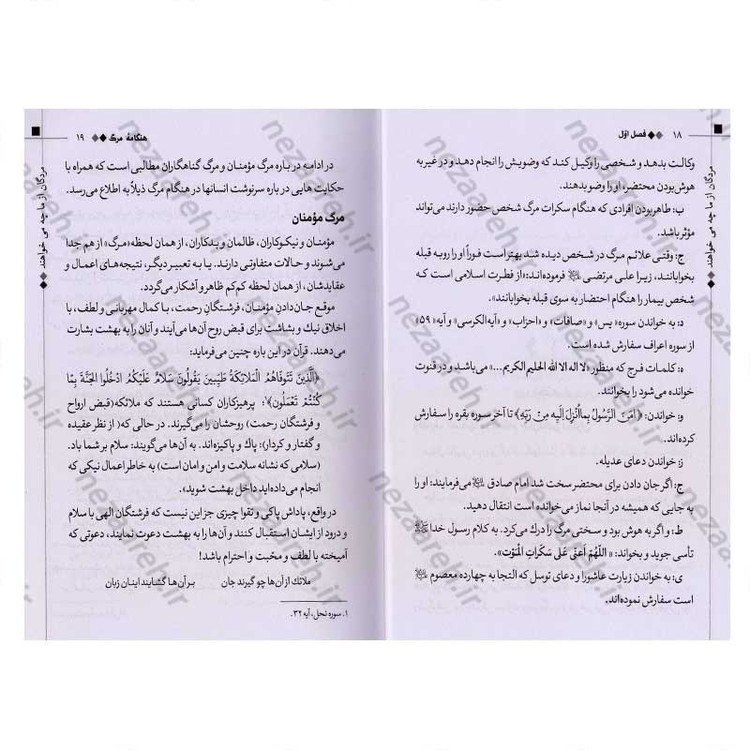 ۱۸ فصل اوّل
مردگان از ما چه می خواهند
وکالت بدهد و شخصی را وکیل کند که وضویش را انجام دهد و در غیر به
هوش بودن محتضر، او را وضو بدهند.
ب: طاهر بودن افرادی که هنگام سکرات مرگ شخص حضور دارند می‌تواند
مؤثر باشد.
ج: وقتی علائم مرگ در شخص دیده شد بهتر است فوراً او را رو به قبله
بخوابانند، زیرا علی مرتضی فرموده‌اند: «از فطرت اسلامی است که
شخص بیمار را هنگام احتضار به سوی قبله بخوابانند».
د: به خواندن سوره «یس» و «صافات» و «احزاب» و «آیه الکرسی» و آیه «۵۹»
از سوره اعراف سفارش شده است.
ه: کلمات فرج که منظور «لا اله الا الله الحلیم الکریم...» می‌باشد و در قنوت
خوانده می‌شود را بخوانند.
و: خواندن: ﴿امَنَ الرَّسُولُ بِمااُنْزِلَ اِلَیهِ مِنْ رَبِّهِ﴾ تا آخر سوره بقره را سفارش
کرده‌اند.
ز: خواندن دعای عدیله.
ح: اگر جان دادن برای محتضر سخت شد امام صادق می‌فرمایند: او را
به جایی که همیشه در آنجا نماز می‌خوانده است انتقال دهید.
ط: و اگر به هوش بود و سختی مرگ را درک می‌کرد. به کلام رسول خدا
تأسی جوید و بخواند: «اللّهُمَّ اَعِنّی عَلی سَکَراتِ المَوْت».
ی: به خواندن زیارت عاشورا و دعای توسل که التجا به چهارده معصوم
است سفارش نموده‌اند.
هنگامهٔ مرگ ۱۹
مردگان از ما چه می خواهند
در ادامه در باره مرگ مؤمنان و مرگ گناهگاران مطالبی است که همراه با
حکایت هایی در باره سرنوشت انسانها در هنگام مرگ ذیلاً به اطلاع می‌رسد.
مرگ مؤمنان
مؤمنان و نیکوکاران، ظالمان و بدکاران، از همان لحظه «مرگ» از هم جدا
می‌شوند و حالات متفاوتی دارند. یا به تعبیر دیگر، نتیجه‌های اعمال و
عقایدشان، از همان لحظه کم‌کم ظاهر و آشکار می‌گردد.
موقع جان‌دادن مؤمنان، فرشتگانِ رحمت، با کمال مهربانی و لطف، با
اخلاق نیک و بشاشت برای قبض روح آن‌ها می‌آیند و آنان را به بهشت بشارت
می‌دهند. قرآن در این باره چنین می‌فرماید:
﴿الَّذِینَ تَتَوَفَّاهُمُ الْمَلَائِکَةُ طَیِّبِینَ یَقُولُونَ سَلَامٌ عَلَیْکُمُ ادْخُلُوا الْجَنَّةَ بِمَا
کُنْتُمْ تَعْمَلُونَ﴾۱؛ پرهیزکاران کسانی هستند که ملائکه(قبض ارواح
و فرشتگان رحمت) روحشان را می‌گیرند. در حالی که (از نظر عقیده
و گفتار و کردار): پاک و پاکیزه‌اند. به آن‌ها می‌گویند: سلام بر شما باد.
(سلامی که نشانه سلامت و امن و امان است) به خاطر اعمال نیکی که
انجام می‌داده‌اید داخل بهشت شوید».
در واقع، پاداش پاکی و تقوا چیزی جز این نیست که فرشتگان الهی با سلام
و درود از ایشان استقبال کنند و آن‌ها را به بهشت دعوت نمایند، دعوتی که
آمیخته با لطف و محبّت و احترام باشد!
ملائک از آن‌ها چو گیرند جان بر آن‌ها گشایند اینان زبان
۱. سوره نحل، آیه ۳۲.
nezaareh.ir